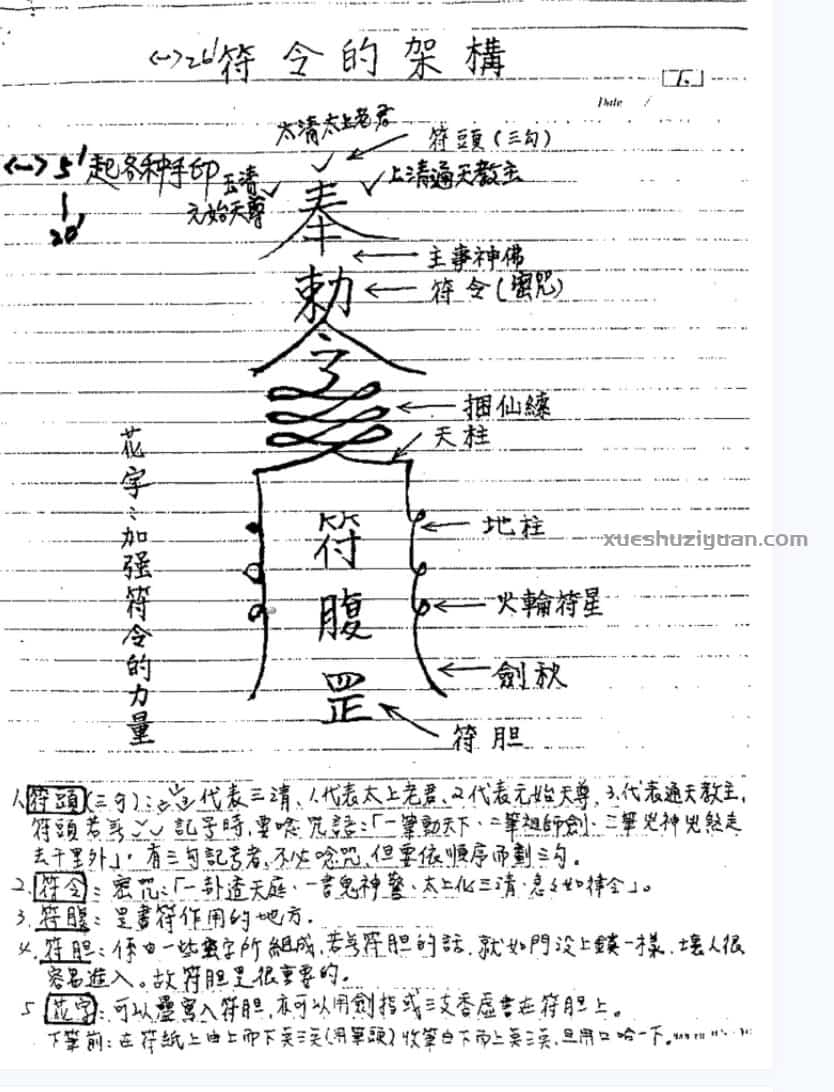 符令的架構
Date /
太清太上老君
符頭(三勾)
起各种手印
玉清
元始天尊
上清通天教主
奉
主事神佛
勅
符令(密咒)
令
捆仙繩
天柱
花字:加强符令的力量
符
地柱
xueshuziyuan.com
腹
火輪符星
劍秋
罡
符胆
1.符頭(三勾):代表三清、1.代表太上老君、2.代表元始天尊、3.代表通天教主,
符頭若 記号時,要唸咒語:「一筆動天下、二筆祖師劍、三筆兇神兇煞走
去千里外」。有三勾記号者,不必唸咒,但要依順序而劃三勾。
2.符令:密咒:「一卦透天庭、一書鬼神驚、太上化三清、急急如律令」。
3.符腹:是書符作用的地方。
4.符胆:係由一些 字所組成,若 符胆的話,就如門沒上鎖一樣,壞人很
容易進入。故符胆是很重要的。
5 花字:可以疊寫入符胆,亦可以用劍指或三支香虛書在符胆上。
下筆前:在符紙上由上而下 三 (用筆頭)收筆自下而上 三 ,且用口哈一下。